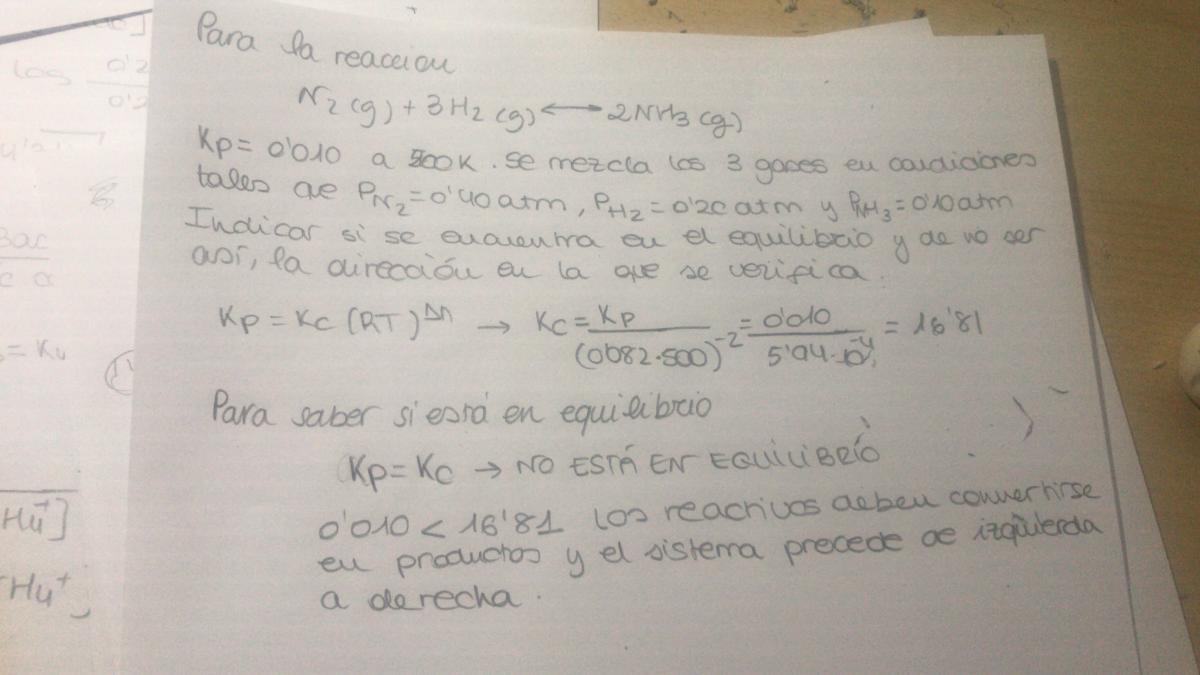 Para la reaccion
N2 (g) + 3H2 (g) ⟷ 2NH3 (g)
Kp = 0'010 a 500K. Se mezcla los 3 gases en condiciones
tales que PN2 = 0'40 atm, PH2 = 0'20 atm y PNH3 = 0'10 atm
Indicar si se encuentra en el equilibrio y de no ser
así, la dirección en la que se verifica.
Kp = Kc (RT)^Δn → Kc = Kp / (0'082·500)^-2 = 0'010 / 5'94·10^-4 = 16'81
Para saber si está en equilibrio
Kp = Kc → NO ESTÁ EN EQUILIBRÍO
0'010 < 16'81 Los reactivos deben convertirse
en productos y el sistema precede de izqüierda
a derecha.
log 0'2
0'2
= Ku